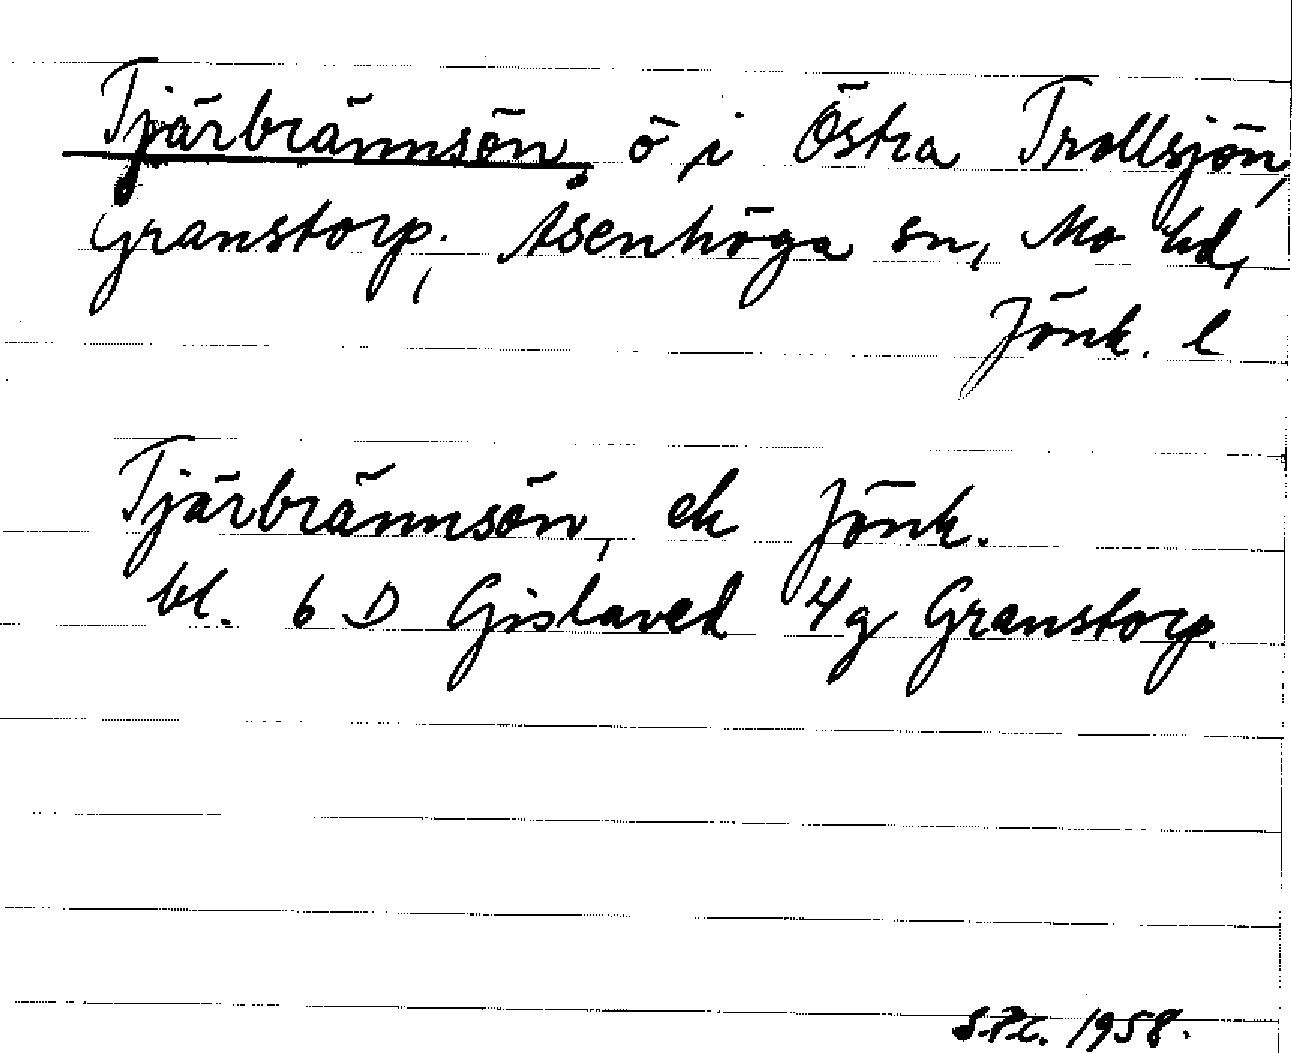 Tjärbrännsön, ö i Östra Trollsjön,
Granstorp, Åsenhöga sn, Mo hd,
Jönk. l
Tjärbrännsön, ek Jönk.
bl. 6 D Gislaved 4g Granstorp.
S.P.C. 1958.